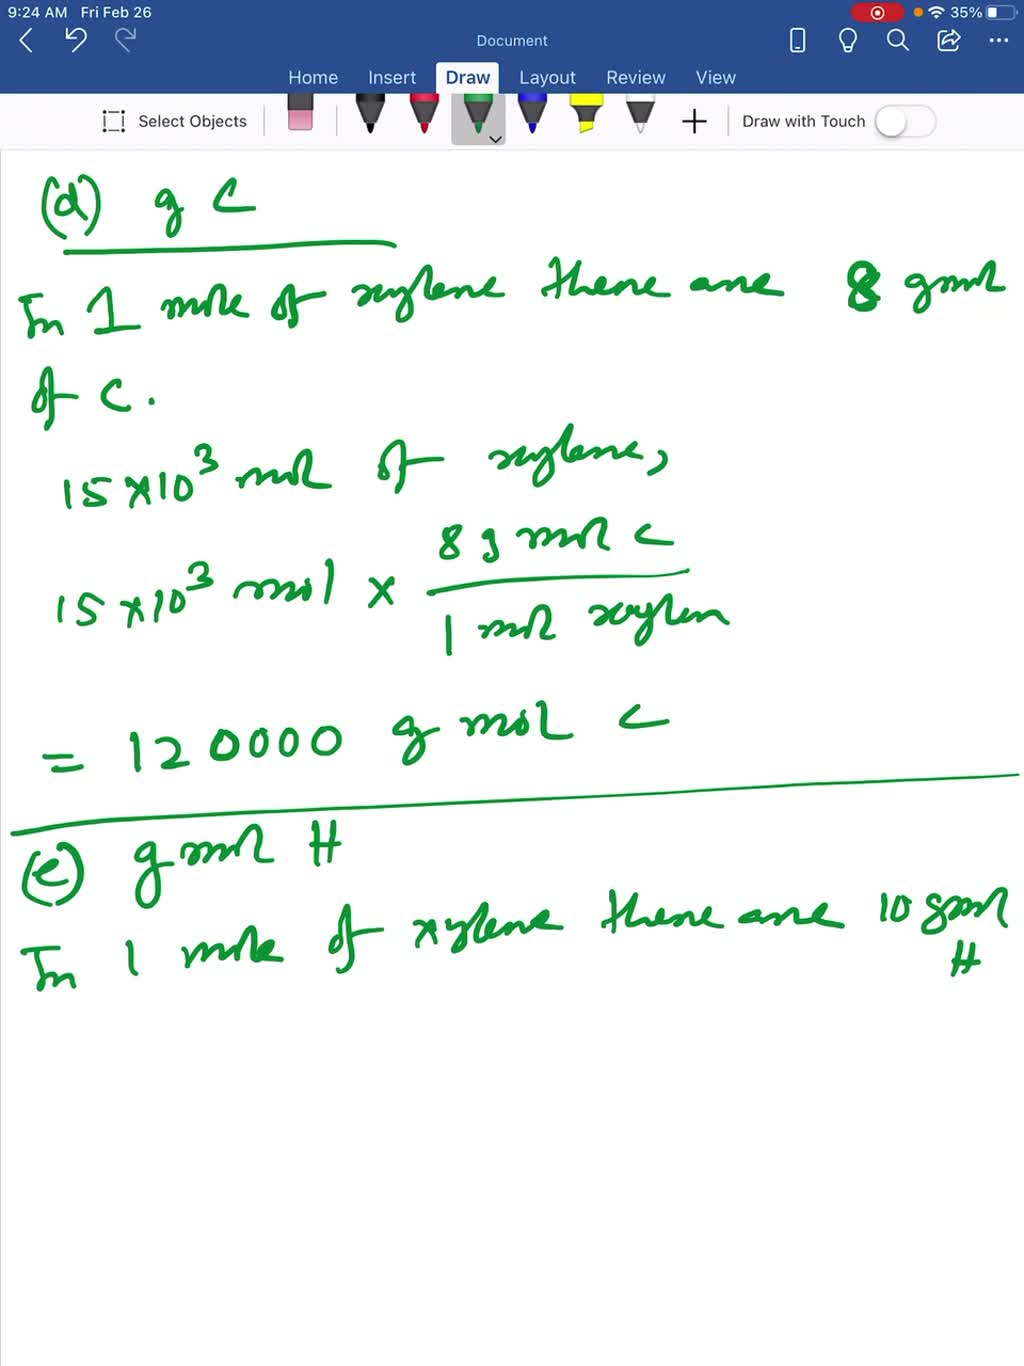 9:24 AM Fri Feb 26 35%
Document
Home Insert Draw Layout Review View
Select Objects Draw with Touch
(d) g C
In 1 mole of xylene there are 8 gmol
of C.
15×10³ mol of xylene,
8 g mol C
15×10³ mol ×
1 mol xylen
= 120000 g mol C
(e) g mol H
In 1 mole of xylene there are 10 gmol
H